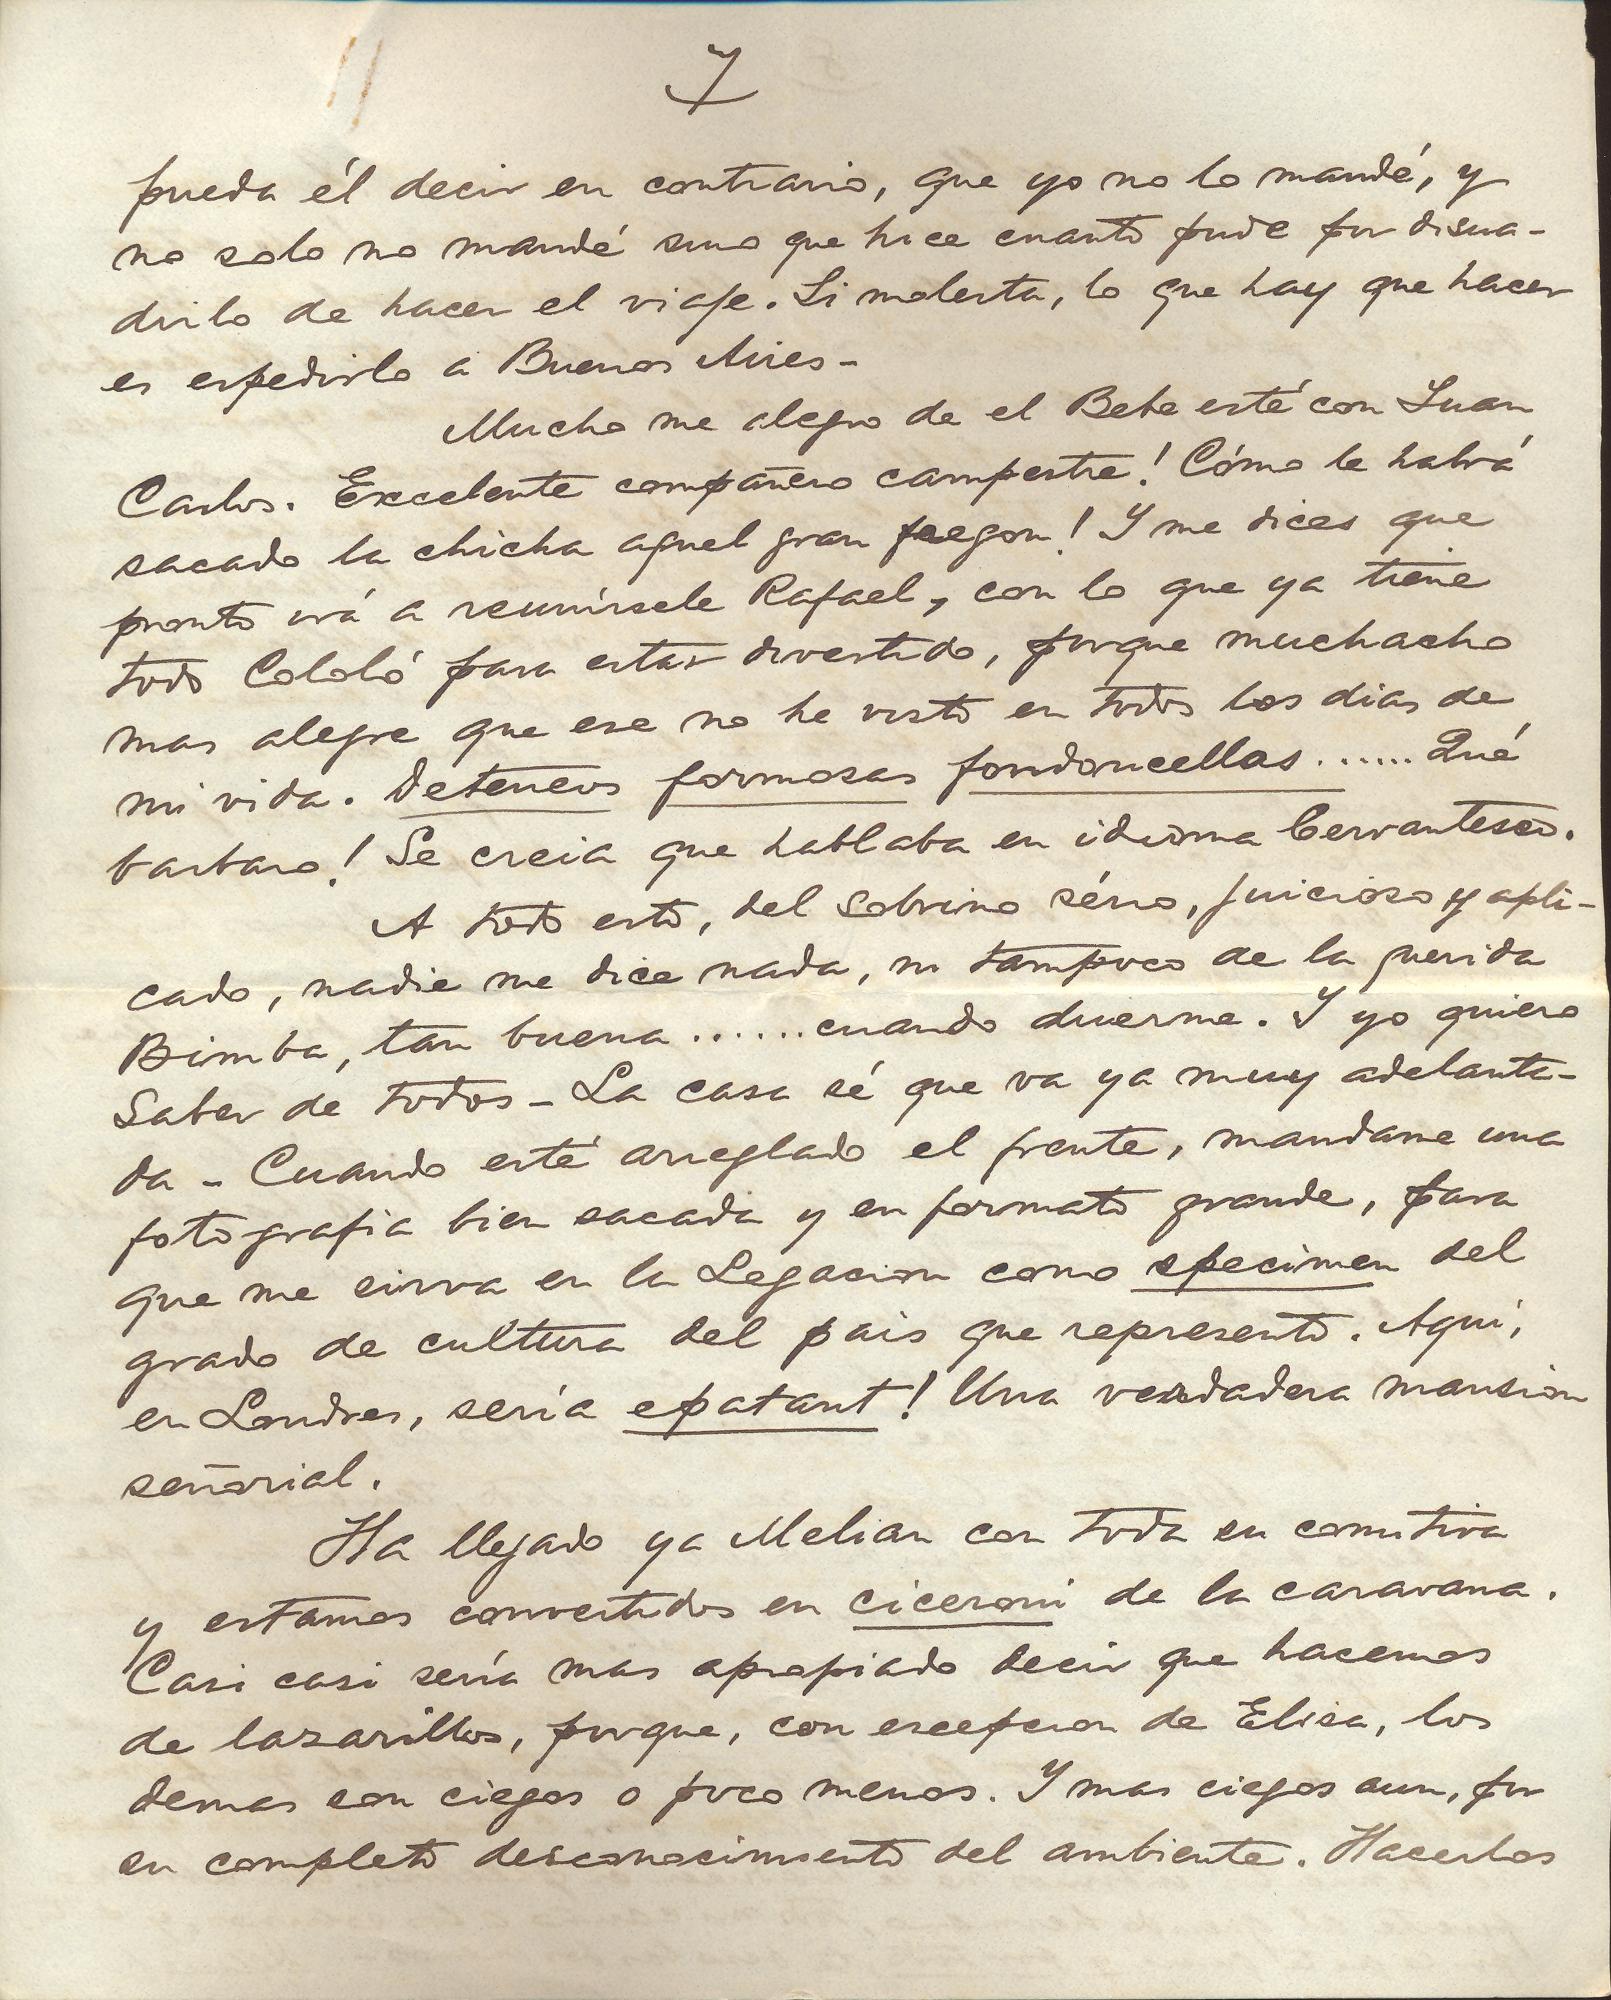 7
pueda él decir en contrario, que yo no lo mandé, y
no solo no mandé sino que hice cuanto pude por disua-
dirlo de hacer el viaje. Si molesta, lo que hay que hacer
es espedirlo a Buenos Aires -
Mucho me alegro de el Bebe esté con Juan
Carlos. Excelente compañero campestre! Cómo le habrá
sacado la chicha aquel gran fregon! Y me dices que
pronto irá a reunírsele Rafael, con lo que ya tiene
todo Cololó para estar divertido, porque muchacho
mas alegre que ese no he visto en todos los dias de
mi vida. Deteneos formosas fondoncellas ...... Qué
barbaro! Se creia que hablaba en idioma Cervantesco.
A todo esto, del sobrino sério, juicioso y apli-
cado, nadie me dice nada, ni tampoco de la querida
Bimba, tan buena ...... cuando duerme. Y yo quiero
saber de todos - La casa sé que va ya muy adelanta-
da - Cuando esté arreglado el frente, mandame una
fotografia bien sacada y en formato grande, para
que me sirva en la Legacion como specimen del
grado de cultura del pais que represento. Aquí,
en Londres, sería epatant! Una verdadera mansion
señorial.
Ha llegado ya Melian con toda su comitiva
y estamos convertidos en ciceroni de la caravana.
Casi casi sería mas apropiado decir que hacemos
de lazarillos, porque, con escepcion de Elisa, los
demas son ciegos o poco menos. Y mas ciegos aun, por
su completo desconocimiento del ambiente. Hacerlos